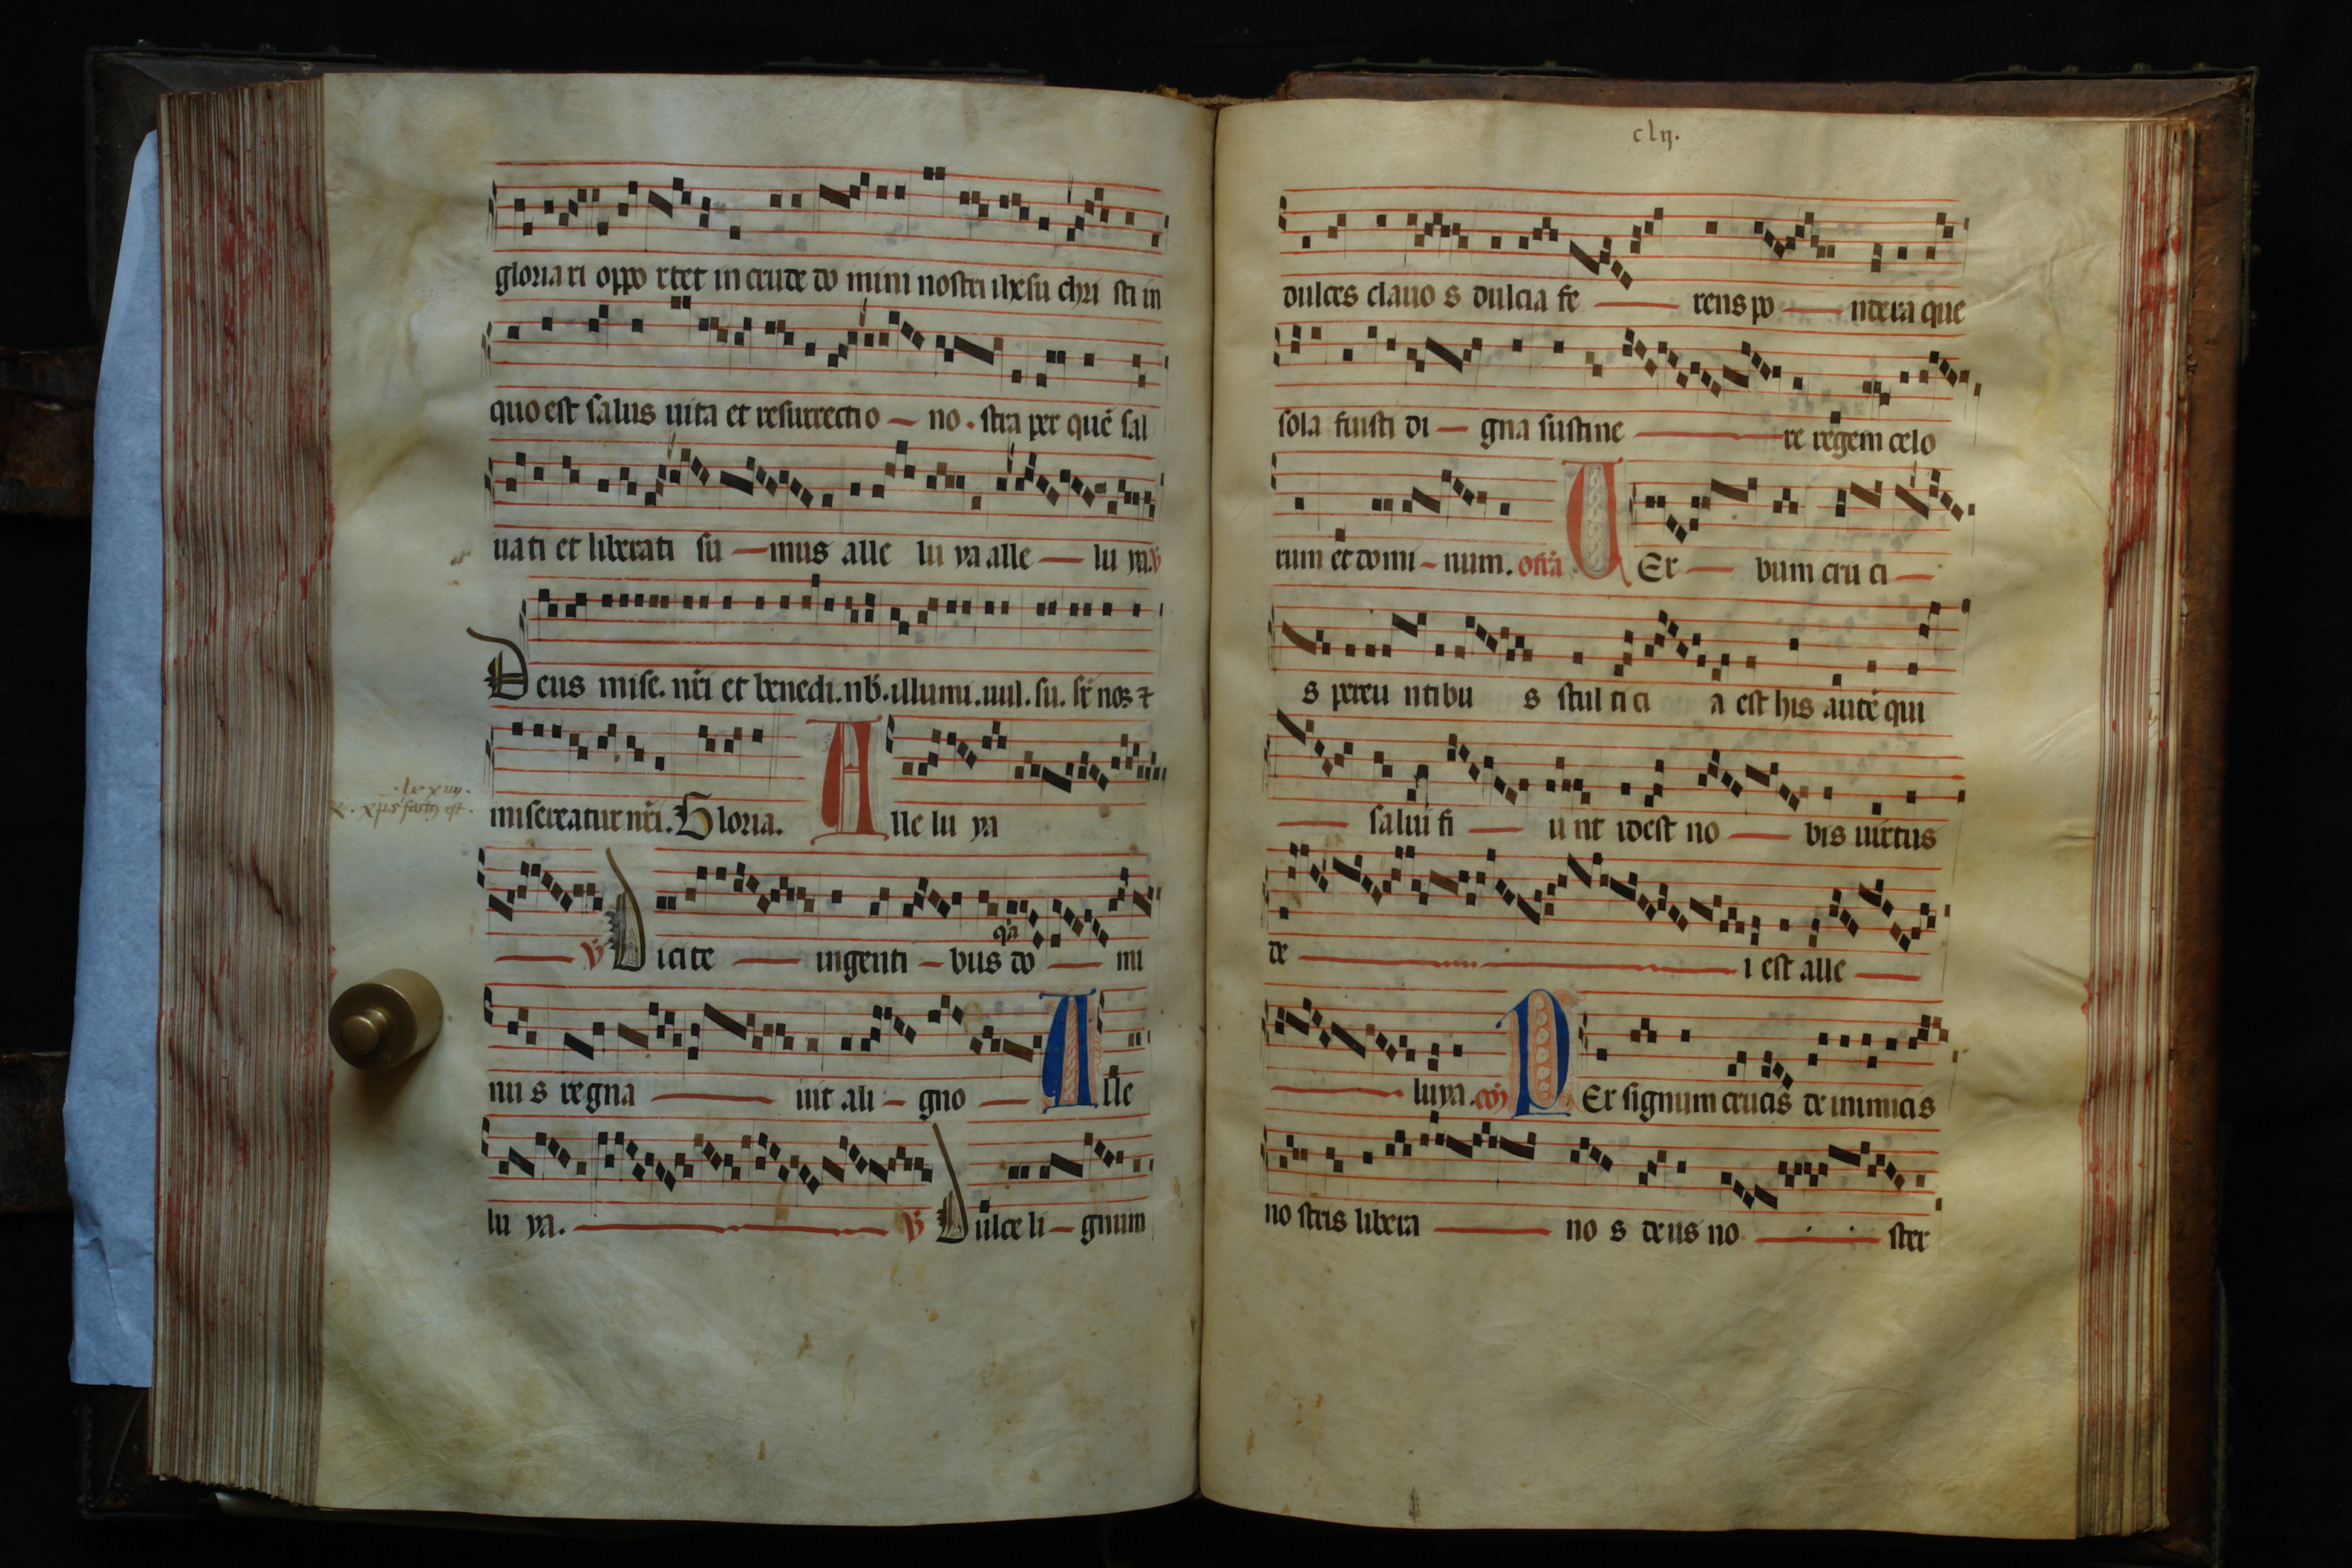 gloria ri oppo rtet in cruce do mini nostri ihesu chri sti in
quo est salus uita et resurrectio no. stra per quē sal
uati et liberati su mus alle lu ya alle lu ya. ℣
Deus mise. nr̄i et benedi. nb̄. illumi. uul. su. sr̄ nos ⁊
misereatur nr̄i. Gloria. Alle lu ya
℣ Dicite ingenti bus do mi
qa
nu s regna uit ali gno Alle
lu ya. ℣ Dulce li gnum
.lxxiiij.
℟. xp̄s factꝰ est.
clij.
dulces clauo s dulcia fe rens po ndera que
sola fuisti di gna sustine re regem celo
rum et domi num. offr̄a UEr bum cru ci
s pereu ntibu s stul ti ci a est his autē qui
salui fi u nt idest no bis uirtus
de i est alle
luya. cōı̄ PEr signum crucis de inimicis
no stris libera no s deus no ster